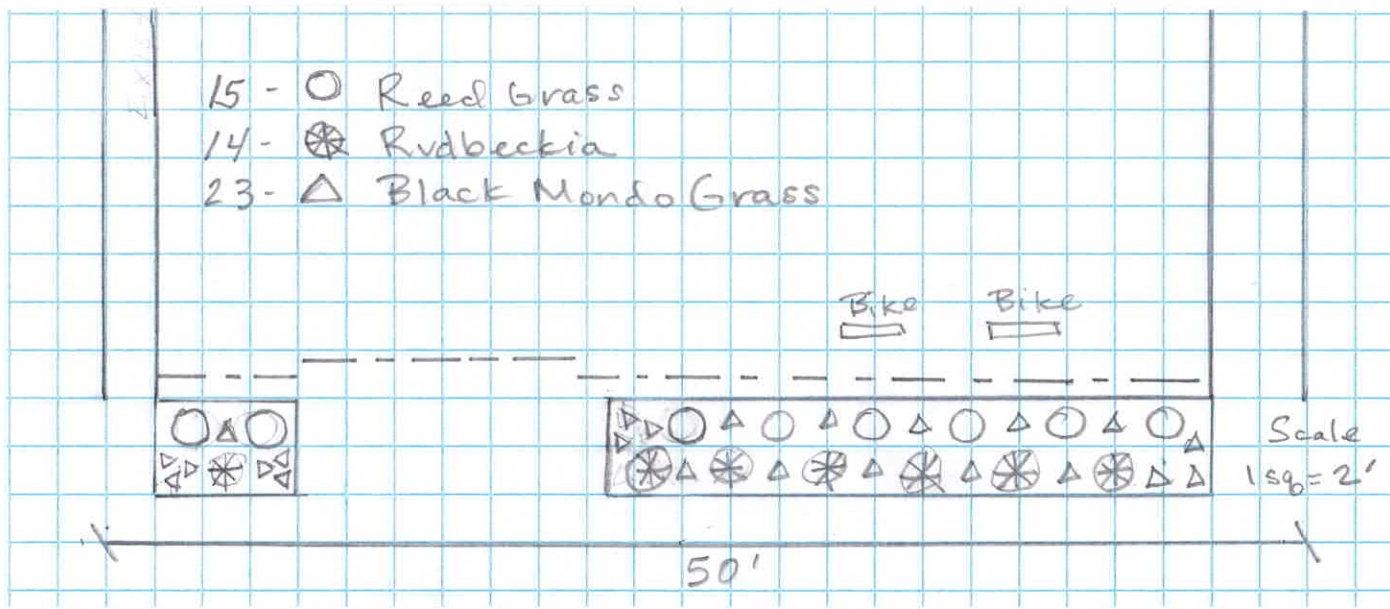 15 - Reed Grass
14 - Rudbeckia
23 - Black Mondo Grass
Bike Bike
Scale
1 sq = 2'
50'